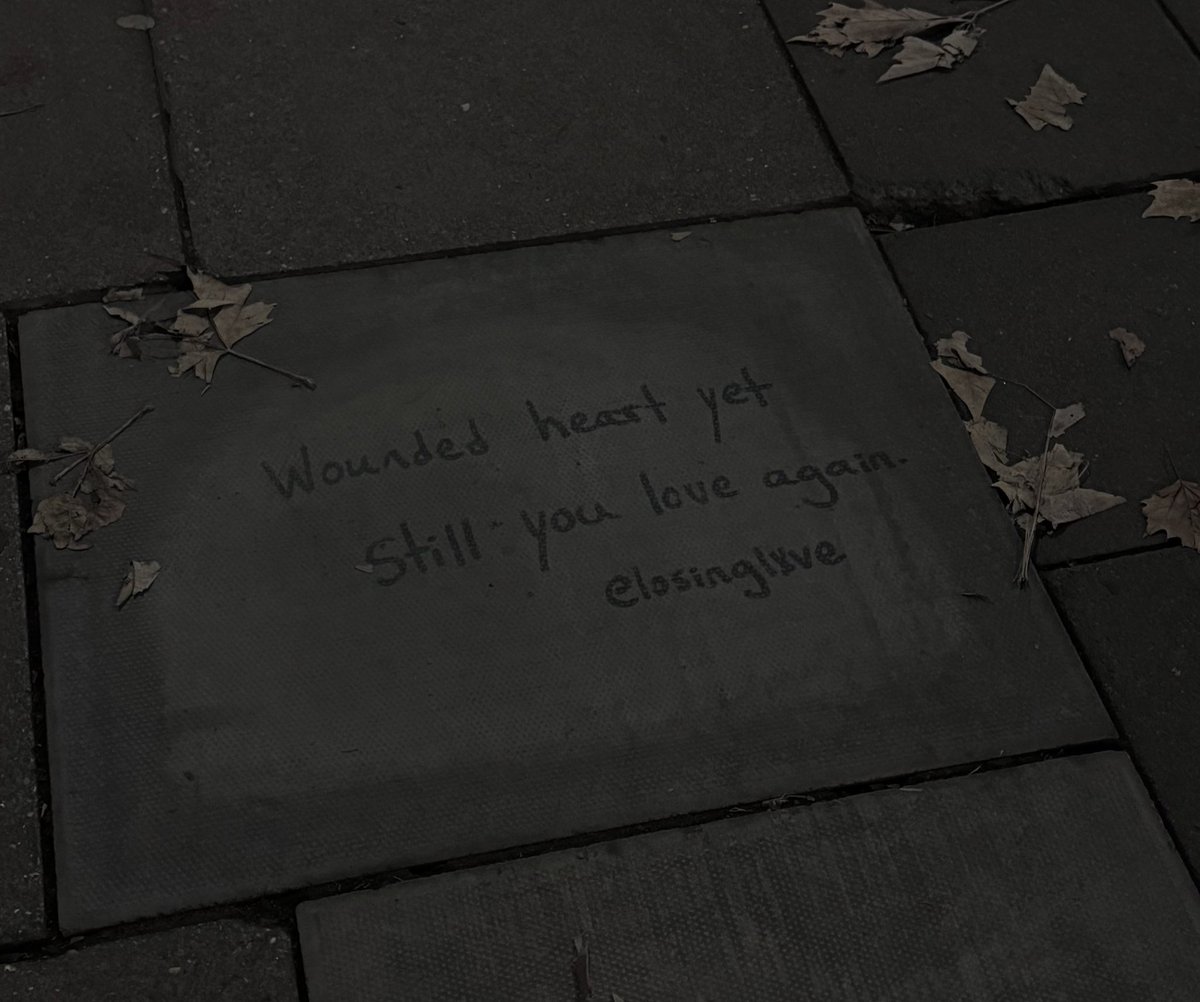 Wounded heart yet
Still you love again.
@losinglxve